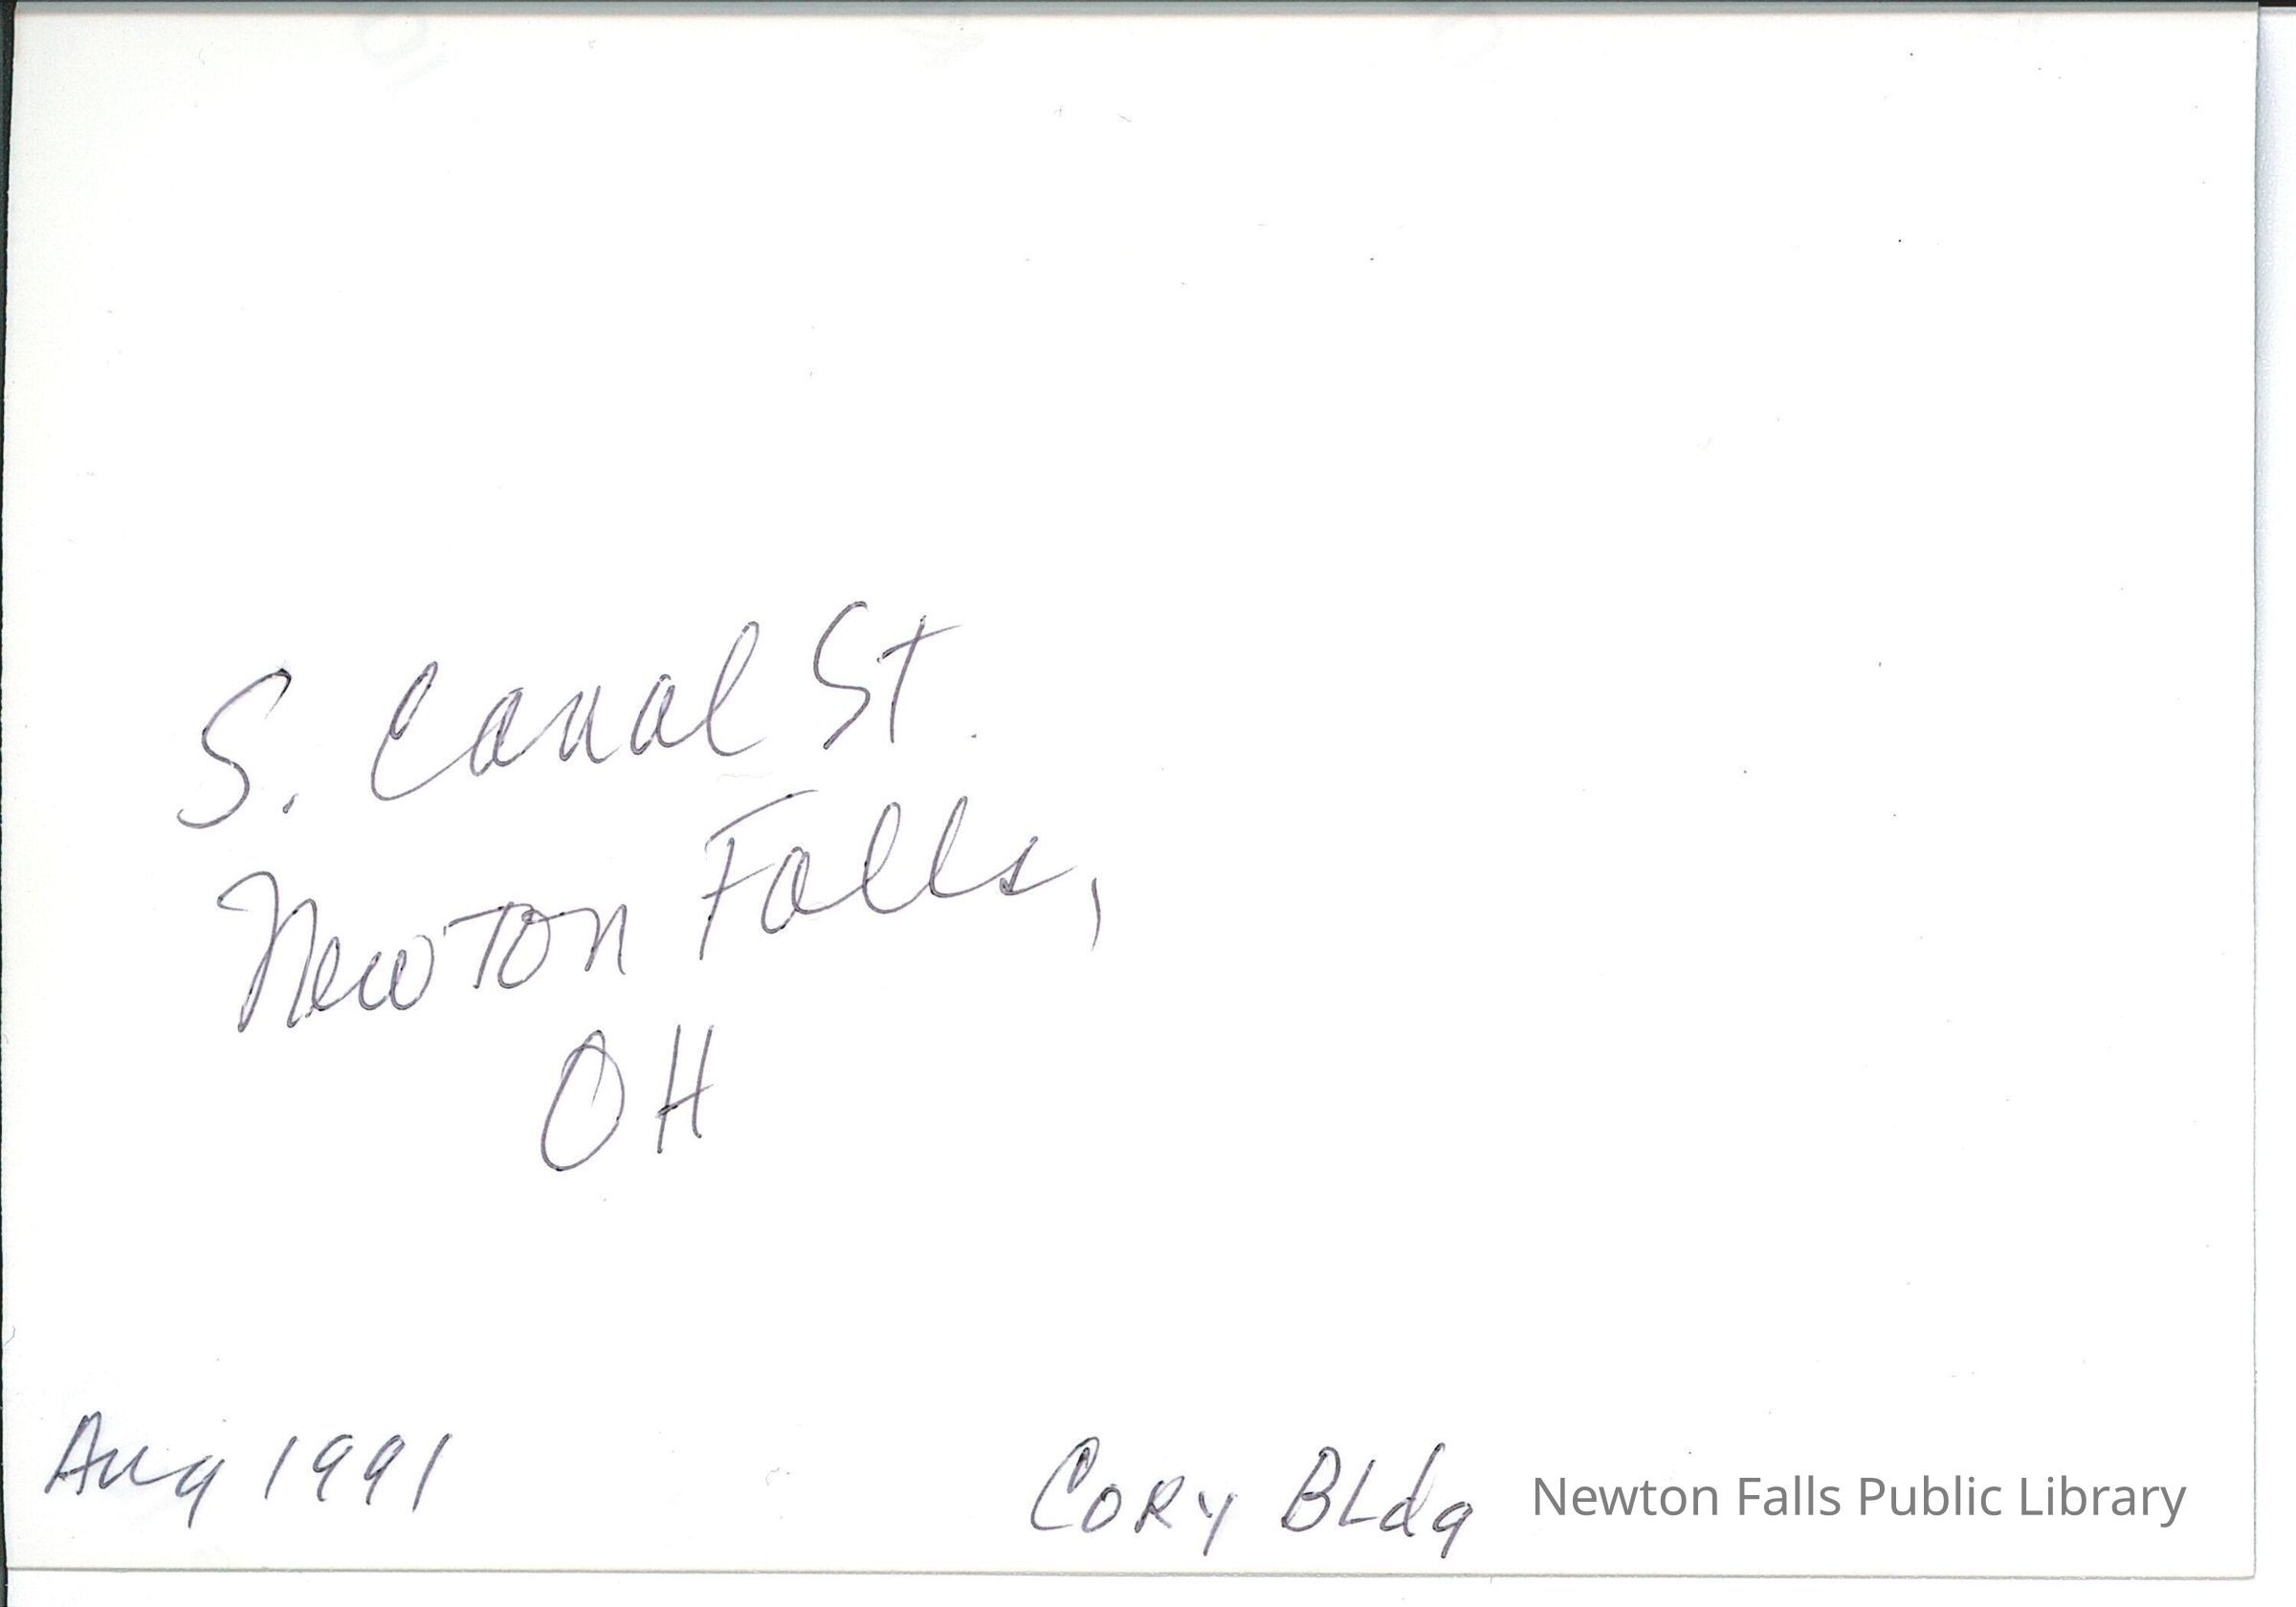 S. Canal St.
Newton Falls,
OH
Aug 1991
CORY BLdg
Newton Falls Public Library